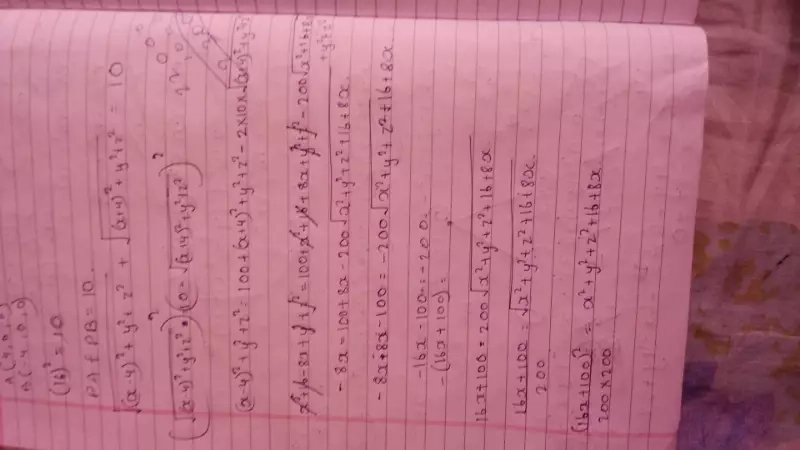 A(4,0,0)
B(-4,0,0)
(16)² = 10
PA + PB = 10.
√(x-4)²+y²+z² + √(x+4)²+y²+z² = 10
(√(x-4)²+y²+z²)² (10-√(x+4)²+y²+z²)²
(x-4)²+y²+z² = 100+(x+4)²+y²+z² - 2x10x√(x+4)²+y²+z²
x²+16-8x+y²+z² = 100+x²+16+8x+y²+z² - 200√x²+16+8x
+y²+z²
-8x = 100+8x-200√x²+y²+z²+16+8x
-8x+8x-100 = -200√x²+y²+z²+16+8x
-16x-100 = -200
-(16x+100) =
16x+100 = 200√x²+y²+z²+16+8x
16x+100 = √x²+y²+z²+16+8x
200
(16x+100)² = x²+y²+z²+16+8x
200x200